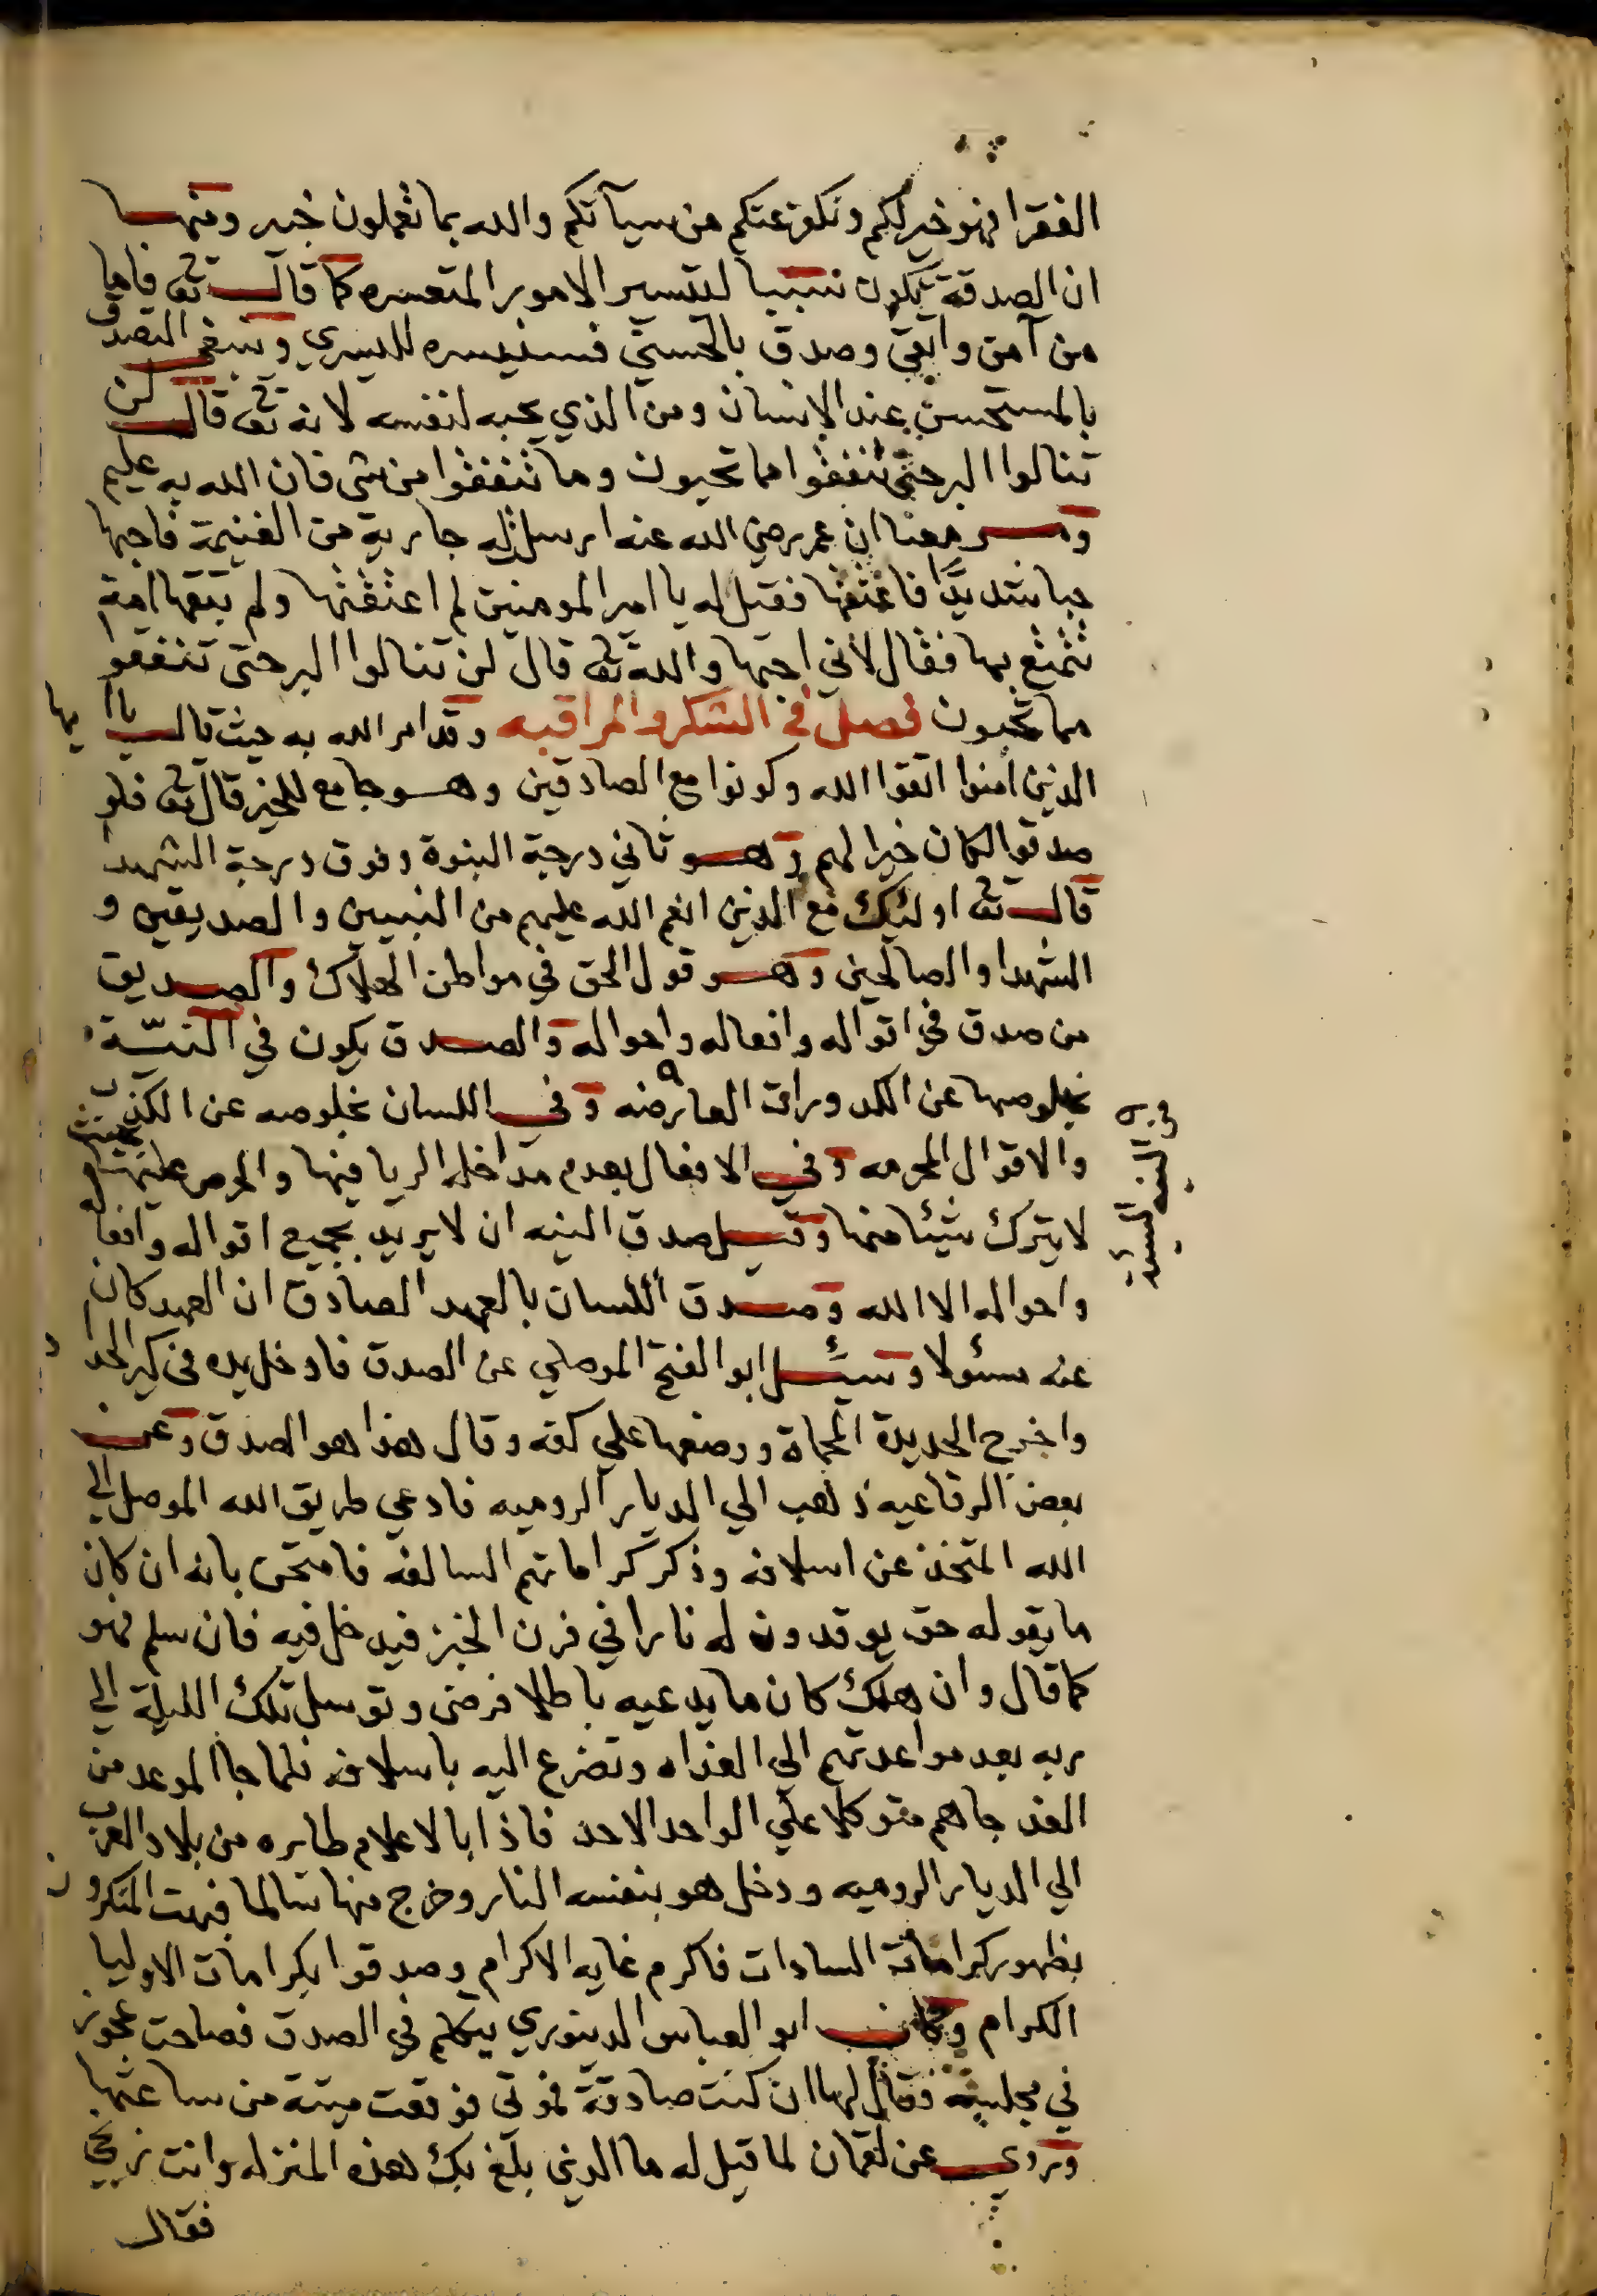 الفقرا فهو خير لكم ونكفر عنكم من سيآتكم والله بما تعملون خبير ومنها
ان الصدقة تكون سببا لتيسير الامور المتعسره كما قال تع فاما
من آمن واتقي وصدق بالحسني فسنيسره لليسري وينبغي التصدق
بالمستحسن عند الانسان ومن الذي يحبه لنفسه لانه تع قال لن
تنالوا البر حتى تنفقوا مما تحبون وما تنفقوا من شي فان الله به عليم
ومر معنا ان عمر رضي الله عنه ارسل له جارية من الغنيمة فاحبها
حبا شديدا فاعتقها فقيل له يا امير المومنين لم اعتقتها ولم تبقها امة
تتمتع بها فقال لاني احبها والله تع قال لن تنالوا البر حتى تنفقوا
مما تحبون فصل في الشكر والمراقبه وقد امر الله به حيث قال يا ايها
الذين امنوا اتقوا الله وكونوا مع الصادقين وهو جامع للخير قال تع فلو
صدقوا لكان خيرا لهم وهو ثاني درجة النبوة وفوق درجة الشهدا
قال تع اولئك مع الذين انعم الله عليهم من النبيين والصديقين و
الشهدا والصالحين وهو قول الحق في مواطن الهلاك والصديق
من صدق في اقواله وافعاله واحواله والصدق يكون في النيّة
بخلوصها عن الكدورات العارضه وفي اللسان بخلوصه عن الكذب
والاقوال المحرمه وفي الافعال بعدم مداخله الريا فيها والحرص عليها بحيث
لا يترك شيئا منها وقيل صدق النيه ان لا يريد بجميع اقواله وافعاله
واحواله الا الله وصدق اللسان بالعهد الصادق ان العهد كان
عنه مسئولا وسئل ابو الفتح الموصلي عن الصدق فادخل يده في كير الحداد
واخرج الحديدة المحماة ووضعها علي كفه وقال هذا هو الصدق وعن
بعض الرفاعيه ذهب الي الديار الروميه فادعي طريق الله الموصل الي
الله المتخذ عن اسلافه وذكر كراماتهم السالفه فامتحن بانه ان كان
ما يقوله حق يوقدون له نارا في فرن الخبز فيدخل فيه فان سلم فهو
كما قال وان هلك كان ما يدعيه باطلا فرضى وتوسل تلك الليلة الي
ربه بعد مواعدتهم الي الغداه وتضرع اليه باسلافه فلما جا الموعد من
الغد جاهم متوكلا علي الواحد الاحد فاذا بالاعلام طايره من بلاد العرب
الي الديار الروميه ودخل هو بنفسه النار وخرج منها سالما فبهت المنكرون
بظهور كرامات السادات فاكرم غايه الاكرام وصدقوا بكرامات الاوليا
الكرام وكان ابو العباس الدينوري يتكلم في الصدق فصاحت عجوز
في مجلسه فقال لها ان كنت صادقة فموتى فوقعت ميتة من ساعتها
وروي عن لقمان لما قيل له ما الذي بلغ بك هذه المنزله وانت زنجي
فقال